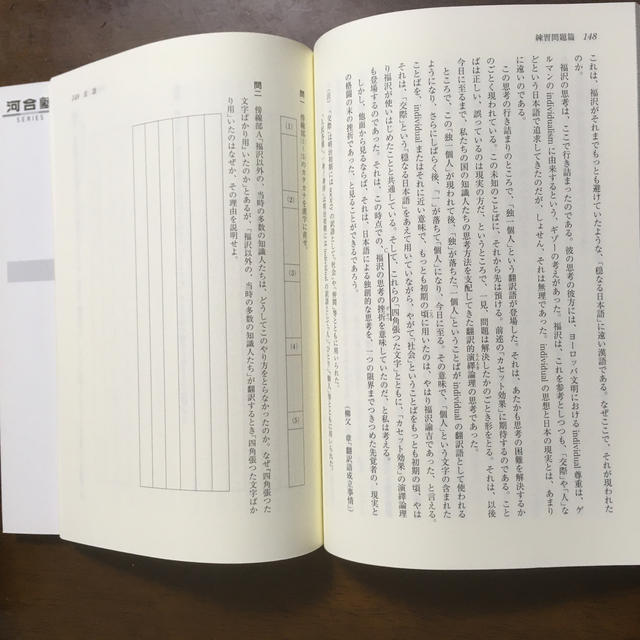 練習問題篇 148
これは、福沢がそれまでもっとも避けていたような、「穏なる日本語」に遠い漢語である。なぜここで、それが現われた
のか。
福沢の思考は、ここで行き詰まったのである。彼の思考の彼方には、ヨーロッパ文明における individual 尊重は、ゲ
ルマンの individualism に由来するという、ギゾーの考えがあった。福沢は、これを参考としつつも、「交際」や「人」な
どという日本語で追求してきたのだが、しょせん、それは無理であった。individual の思想と日本の現実とは、あまり
この思考の行き詰まりのところで、「独一個人」という翻訳語が登場した。それは、あたかも思考の困難を解決するか
のごとく現われている。この未知のことばに、それから先は預ける。前述の「カセット効果」に期待するのである。こと
ばは正しい、誤っているのは現実の方だ、というところで、一見、問題は解決したかのごとき形をとる。それは、以後
今日に至るまで、私たちの国の知識人たちの思考方法を支配してきた翻訳的演繹論理の思考であった。
ところで、この「独一個人」が現われて後、「独」が落ちた「一個人」ということばが individual の翻訳語として使われる
ようになり、さらにしばらく後、「一」が落ちて「個人」になり、今日に至る。その意味で、「個人」という文字の含まれた
ことばを、individual またはそれに近い意味で、もっとも初期の頃に用いたのは、やはり福沢諭吉であった、と言える。
それは、「交際」という「穏なる日本語」をあえて用いていながら、やがて「社会」ということばをもっとも初期の頃、やは
り福沢が使いはじめたことと共通している。そして、これらの「四角張った文字」とともに、「カセット効果」の演繹論理
も登場するのであった。それは、この時点での、福沢の思考の挫折を意味していたのだ、と私は考える。
しかし、他面から見るならば、それは、日本語による独創的な思考を、一つの限界までつきつめた先覚者の、現実と
の格闘の末の挫折であった、と見ることができるであろう。
(柳父 章『翻訳語成立事情』)
問一 傍線部(1)~(5)のカタカナを漢字に直せ。
(1)
(2)
(3)
(4)
(5)
問二 傍線部A「福沢以外の、当時の多数の知識人たちは、どうしてこのやり方をとらなかったのか、なぜ『四角張った
文字ばかり用』いたのか」とあるが、「福沢以外の、当時の多数の知識人たち」が翻訳するとき「四角張った文字ばか
り用」いたのはなぜか、その理由を説明せよ。
河合塾
SERIES